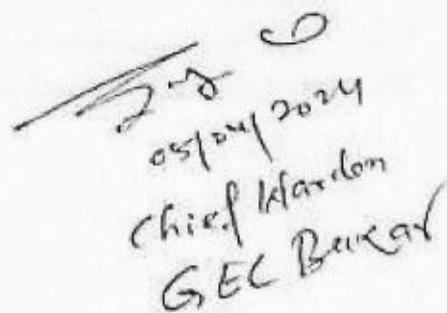 05/04/2024
Chief Warden
GEC Buxar